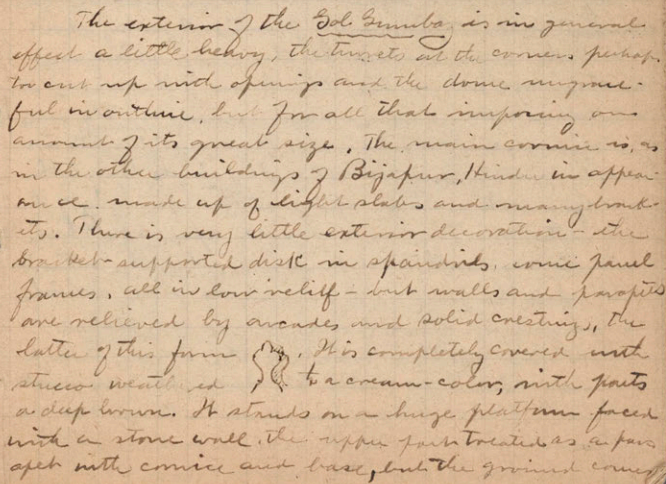 The exterior of the Gol Gumbaz is in general
effect a little heavy, the turrets at the corners perhaps
too cut up with openings and the dome ungrace-
ful in outline, but for all that imposing on
amount of its great size. The main cornice is, as
in the other buildings of Bijapur, Hindu in appear-
ance made up of light slabs and many brack-
ets. There is very little exterior decoration - the
bracket-supported disk in spandrils, some panel
frames, all in low relief - but walls and parapets
are relieved by arcades and solid crestings, the
latter of this form . It is completely covered with
stucco weathered to a cream-color, with parts
a deep brown. It stands on a huge platform faced
with a stone wall, the upper part treated as a par-
apet with cornice and base, but the ground comes